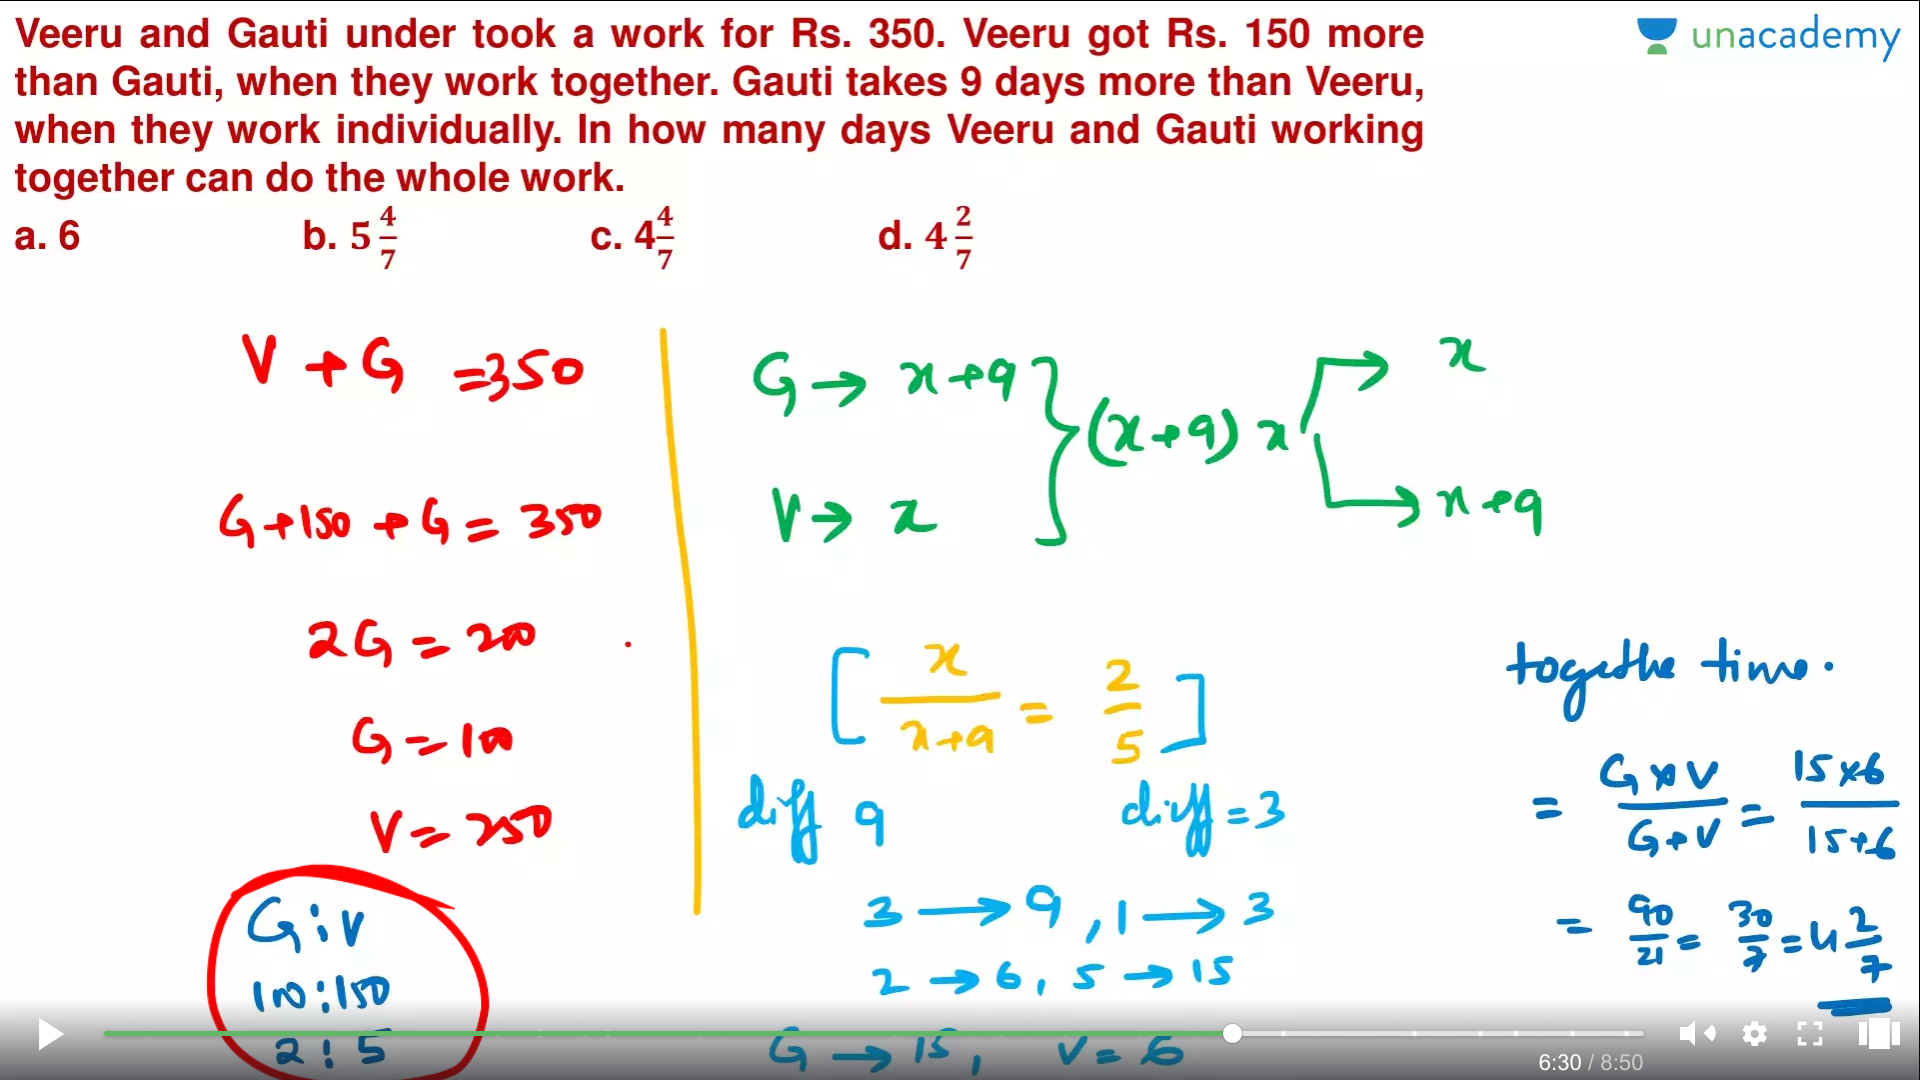 Veeru and Gauti under took a work for Rs. 350. Veeru got Rs. 150 more
than Gauti, when they work together. Gauti takes 9 days more than Veeru,
when they work individually. In how many days Veeru and Gauti working
together can do the whole work.
a. 6 b. 5 4/7 c. 4 4/7 d. 4 2/7
unacademy
V + G = 350
G+150 + G = 350
2G = 200
G = 100
V = 250
G : V
100 : 150
2 : 5
G → x+9
V → x
(x+9) x
x
x+9
[ x/x+9 = 2/5 ]
diff 9 diff = 3
3 → 9 , 1 → 3
2 → 6 , 5 → 15
G → 15 , V = 6
togethe time.
= G×V/G+V = 15×6/15+6
= 90/21 = 30/7 = 4 2/7
6:30 / 8:50